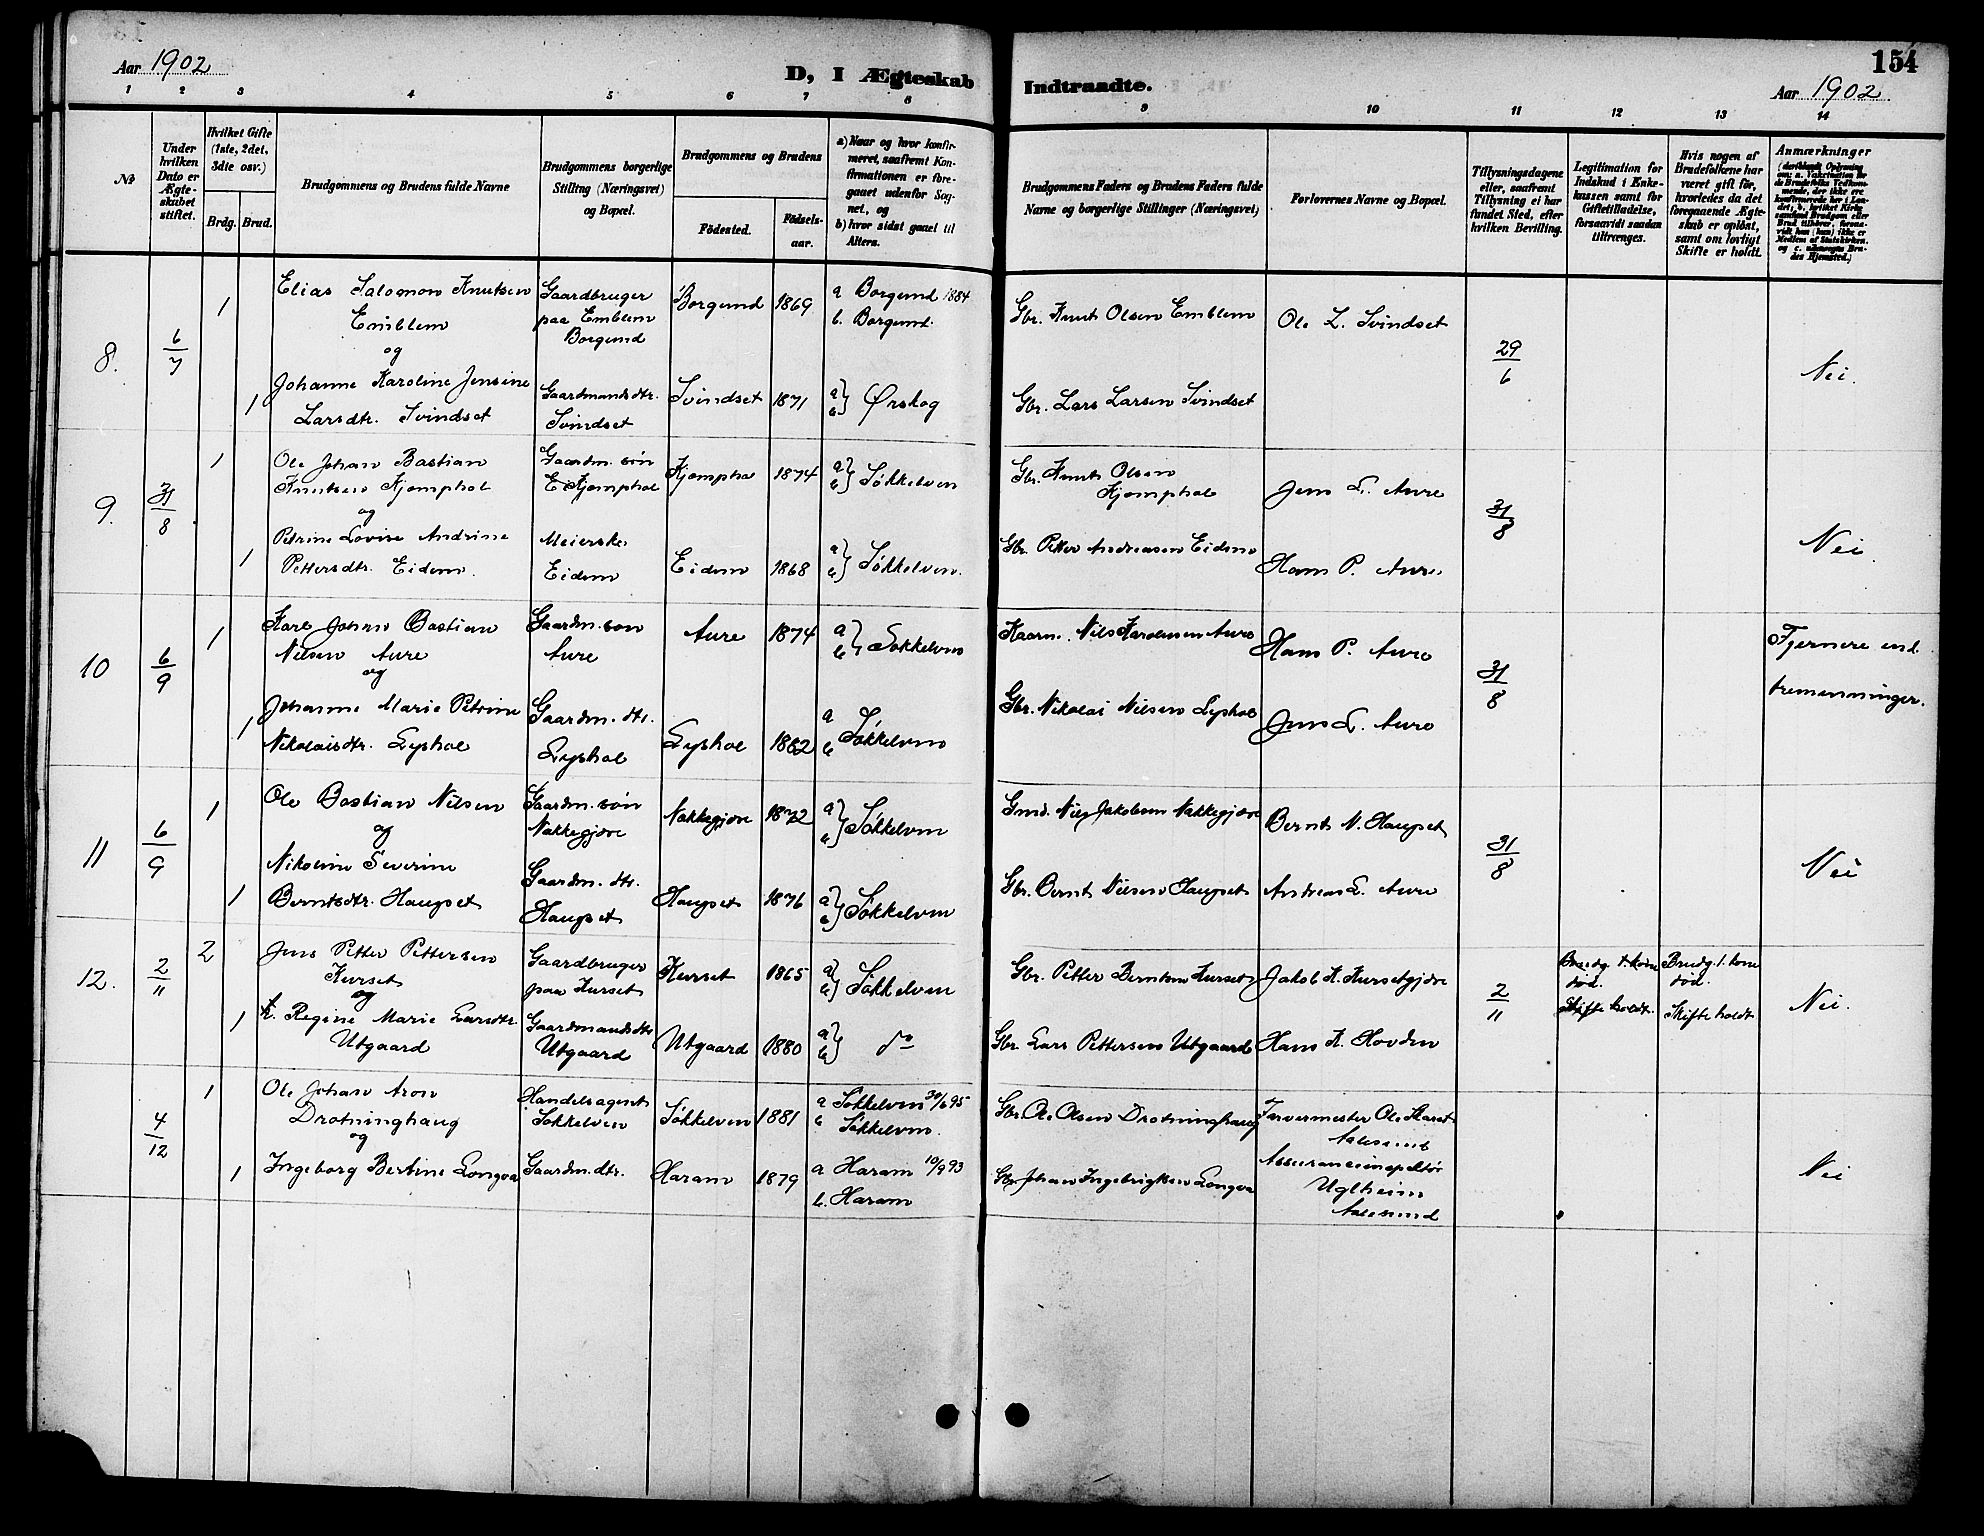 154
Aar 1902
D, I Ægteskab
Indtraadte.
Aar 1902
1 2 3 4 5 6 7 8 9 10 11 12 13 14
No
Under hvilken Dato er Ægteskabet stiftet.
Hvilket Gifte (1ste, 2det, 3die osv.)
Brdg. Brud.
Brudgommens og Brudens fulde Navne
Brudgommens borgerlige Stilling (Næringsvei) og Bopæl.
Brudgommens og Brudens
Fødested.
Fødsels-aar.
a) Naar og hvor konfirmeret, saafremt Konfirmationen er foregaaet udenfor Sognet, og
b) hvor sidst gaaet til Alters.
Brudgommens Faders og Brudens Faders fulde Navne og borgerlige Stillinger (Næringsvei)
Forlovernes Navne og Bopæl.
Tillysningsdagene eller, saafremt Tillysning ei har fundet Sted, efter hvilken Bevilling.
Legitimation for Indskud i Enkekassen samt for Giftetilladelse, forsaavidt saadan tiltrænges.
Hvis nogen af Brudefolkene har været gift før, hvorledes da det foregaaende Ægteskab er opløst, samt om lovligt Skifte er holdt.
Anmærkninger
8.
6/7
1
Elias Salomon Knutsen
Emblem
og
Gaardbruger
paa Emblem
Borgund
Borgund
1869
a Borgund 1884
b. Borgund.
Gbr. Knut Olsen Emblem
Ole L. Svindset
29/6
Nei.
1
Johanne Karoline Jensine
Larsdtr. Svindset
Gaardmandsdtr.
Svindset
Svindset
1871
a b } Ørskog
Gbr. Lars Larsen Svindset
9.
31/8
1
Ole Johan Bastian
Knutsen Kjemphol
og
Gaardm. søn
Kjemphol
Kjemphol
1874
a b } Søkkelven
Gbr. Knut Olsen
Kjemphol
Jens L. Aure
31/8
Nei
1
Petrine Lovise Andrine
Pettersdtr. Eidem.
Meierske
Eidem
Eidem
1868
a b } Søkkelven.
Gbr. Petter Andreassen Eidem
Hans P. Aure
10
6/9
1
Karl Johan Bastian
Nilsen Aure
og
Gaardm. søn
Aure
Aure
1874
a b } Søkkelven
Kaarm. Nils Karolussen Aure
Hans P. Aure
31/8
Fjernere end
tremenninger.
1
Johanne Marie Petrine
Nikolaisdtr. Lyshol
Gaardm. dtr.
Lyshol
Lyshol
1882
a b Søkkelven
Gbr. Nikolai Nilsen Lyshol
Jens L. Aure
11
6/9
1
Ole Bastian Nilsen
og
Gaardm. søn
Nakkegjære
Nakkegjære
1872
a b } Søkkelven
Gmd. Nils Jakobsen Nakkegjære
Bernt N. Haugset
31/8
Nei
1
Nikoline Severine
Berntsdtr. Haugset
Gaardm. dtr.
Haugset
Haugset
1876
a b } Søkkelven
Gbr. Bernt Nilsen Haugset
Andreas L. Aure
12.
2/11
2
Jens Petter Pettersen
Kurset
og
Gaardbruger
paa Kurset
Kurset
1865
a b } Søkkelven
Gbr. Petter Berntsen Kurset
Jakob K. Kursetgjære
2/11
Brudg. 1. kone
død.
Skifte holdt.
Brudg. 1. kone
død.
Skifte holdt
Nei.
1
Regine Marie Larsdtr.
Utgaard
Gaardmandsdtr
Utgaard
Utgaard
1880
a b } do
Gbr. Lars Pettersen Utgaard
Hans K. Hovden
4/12
1
Ole Johan Aron
Drotninghaug
og
Handelsagent
Søkkelven
Søkkelven
1881
a Søkkelven 30/6 95
b Søkkelven.
Gbr. Ole Olsen Drotninghaug
Farvermester Ole Skaret
Aalesund
Nei
1
Ingeborg Bertine Longva
Gaardm. dtr.
Haram
1879
a Haram 10/9 93
b. Haram
Gbr. Johan Ingebrigtsen Longva
Assuranceinspektør
Uglheim
Aalesund